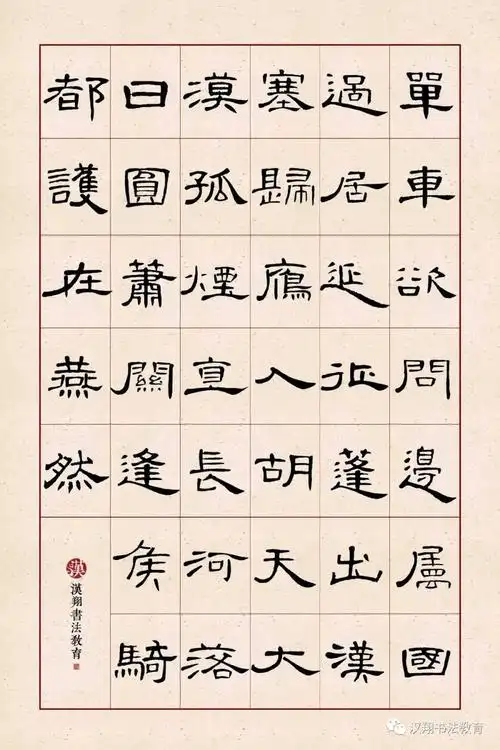 單車欲問邊屬國
過居延征蓬出漢
塞歸鴈入胡天大
漠孤煙直長河落
日圓蕭關逢侯騎
都護在燕然
漢
漢翔書法教育
汉翔书法教育